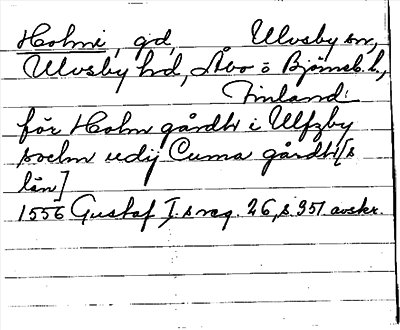 Holmi, gd, Ulvsby sn,
Ulvsby hd, Åbo o Björneb. l.,
Finland.
för Holm gårdh i Ulfzby
sochn udij Cumo gårdh[s
län]
1556 Gustaf I:s reg. 26, s. 351. avskr.